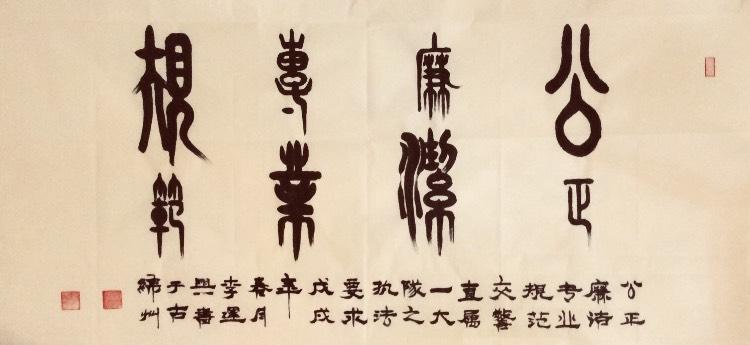 公正
廉潔
專業
規範
公正
廉洁
专业
规范
交警
直属
一大
隊之
执法
要求
戊戌
年
春月
李運
興書
于古
綿州